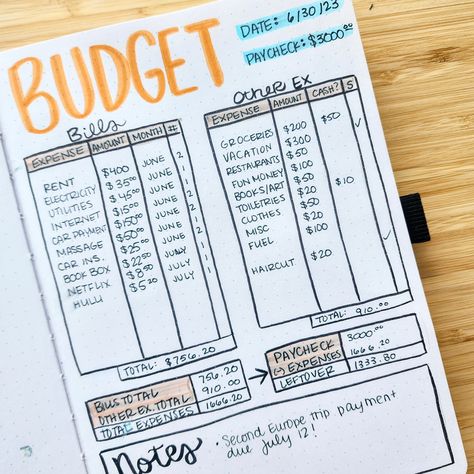 BUDGET
DATE: 6/30/23
PAYCHECK: $3000.00
Bills
EXPENSE AMOUNT MONTH #
RENT $400 JUNE
ELECTRICITY $35.00 JUNE
UTILITIES $45.00 JUNE
INTERNET $15.00 JUNE
CAR PAYMENT $150.00 JUNE
MASSAGE $50.00 JUNE
CAR INS. $25.00 JUNE
BOOK BOX $22.50 JULY
NETFLIX $8.50 JULY
HULU $5.20 JULY
TOTAL: $756.20
Other Ex
EXPENSE AMOUNT CASH? S
GROCERIES $200 $50
VACATION $300 ✓
RESTAURANTS $50
FUN MONEY $100
BOOKS/ART $50
TOILETRIES $20 $10
CLOTHES $50
MISC $20
FUEL $100 ✓
HAIRCUT $20
TOTAL: 910.00
BILLS TOTAL 756.20
OTHER EX. TOTAL 910.00
TOTAL EXPENSES 1666.20
PAYCHECK 3000.00
(-) EXPENSES 1666.20
LEFTOVER 1333.80
Notes
• Second Europe trip payment
due July 12!